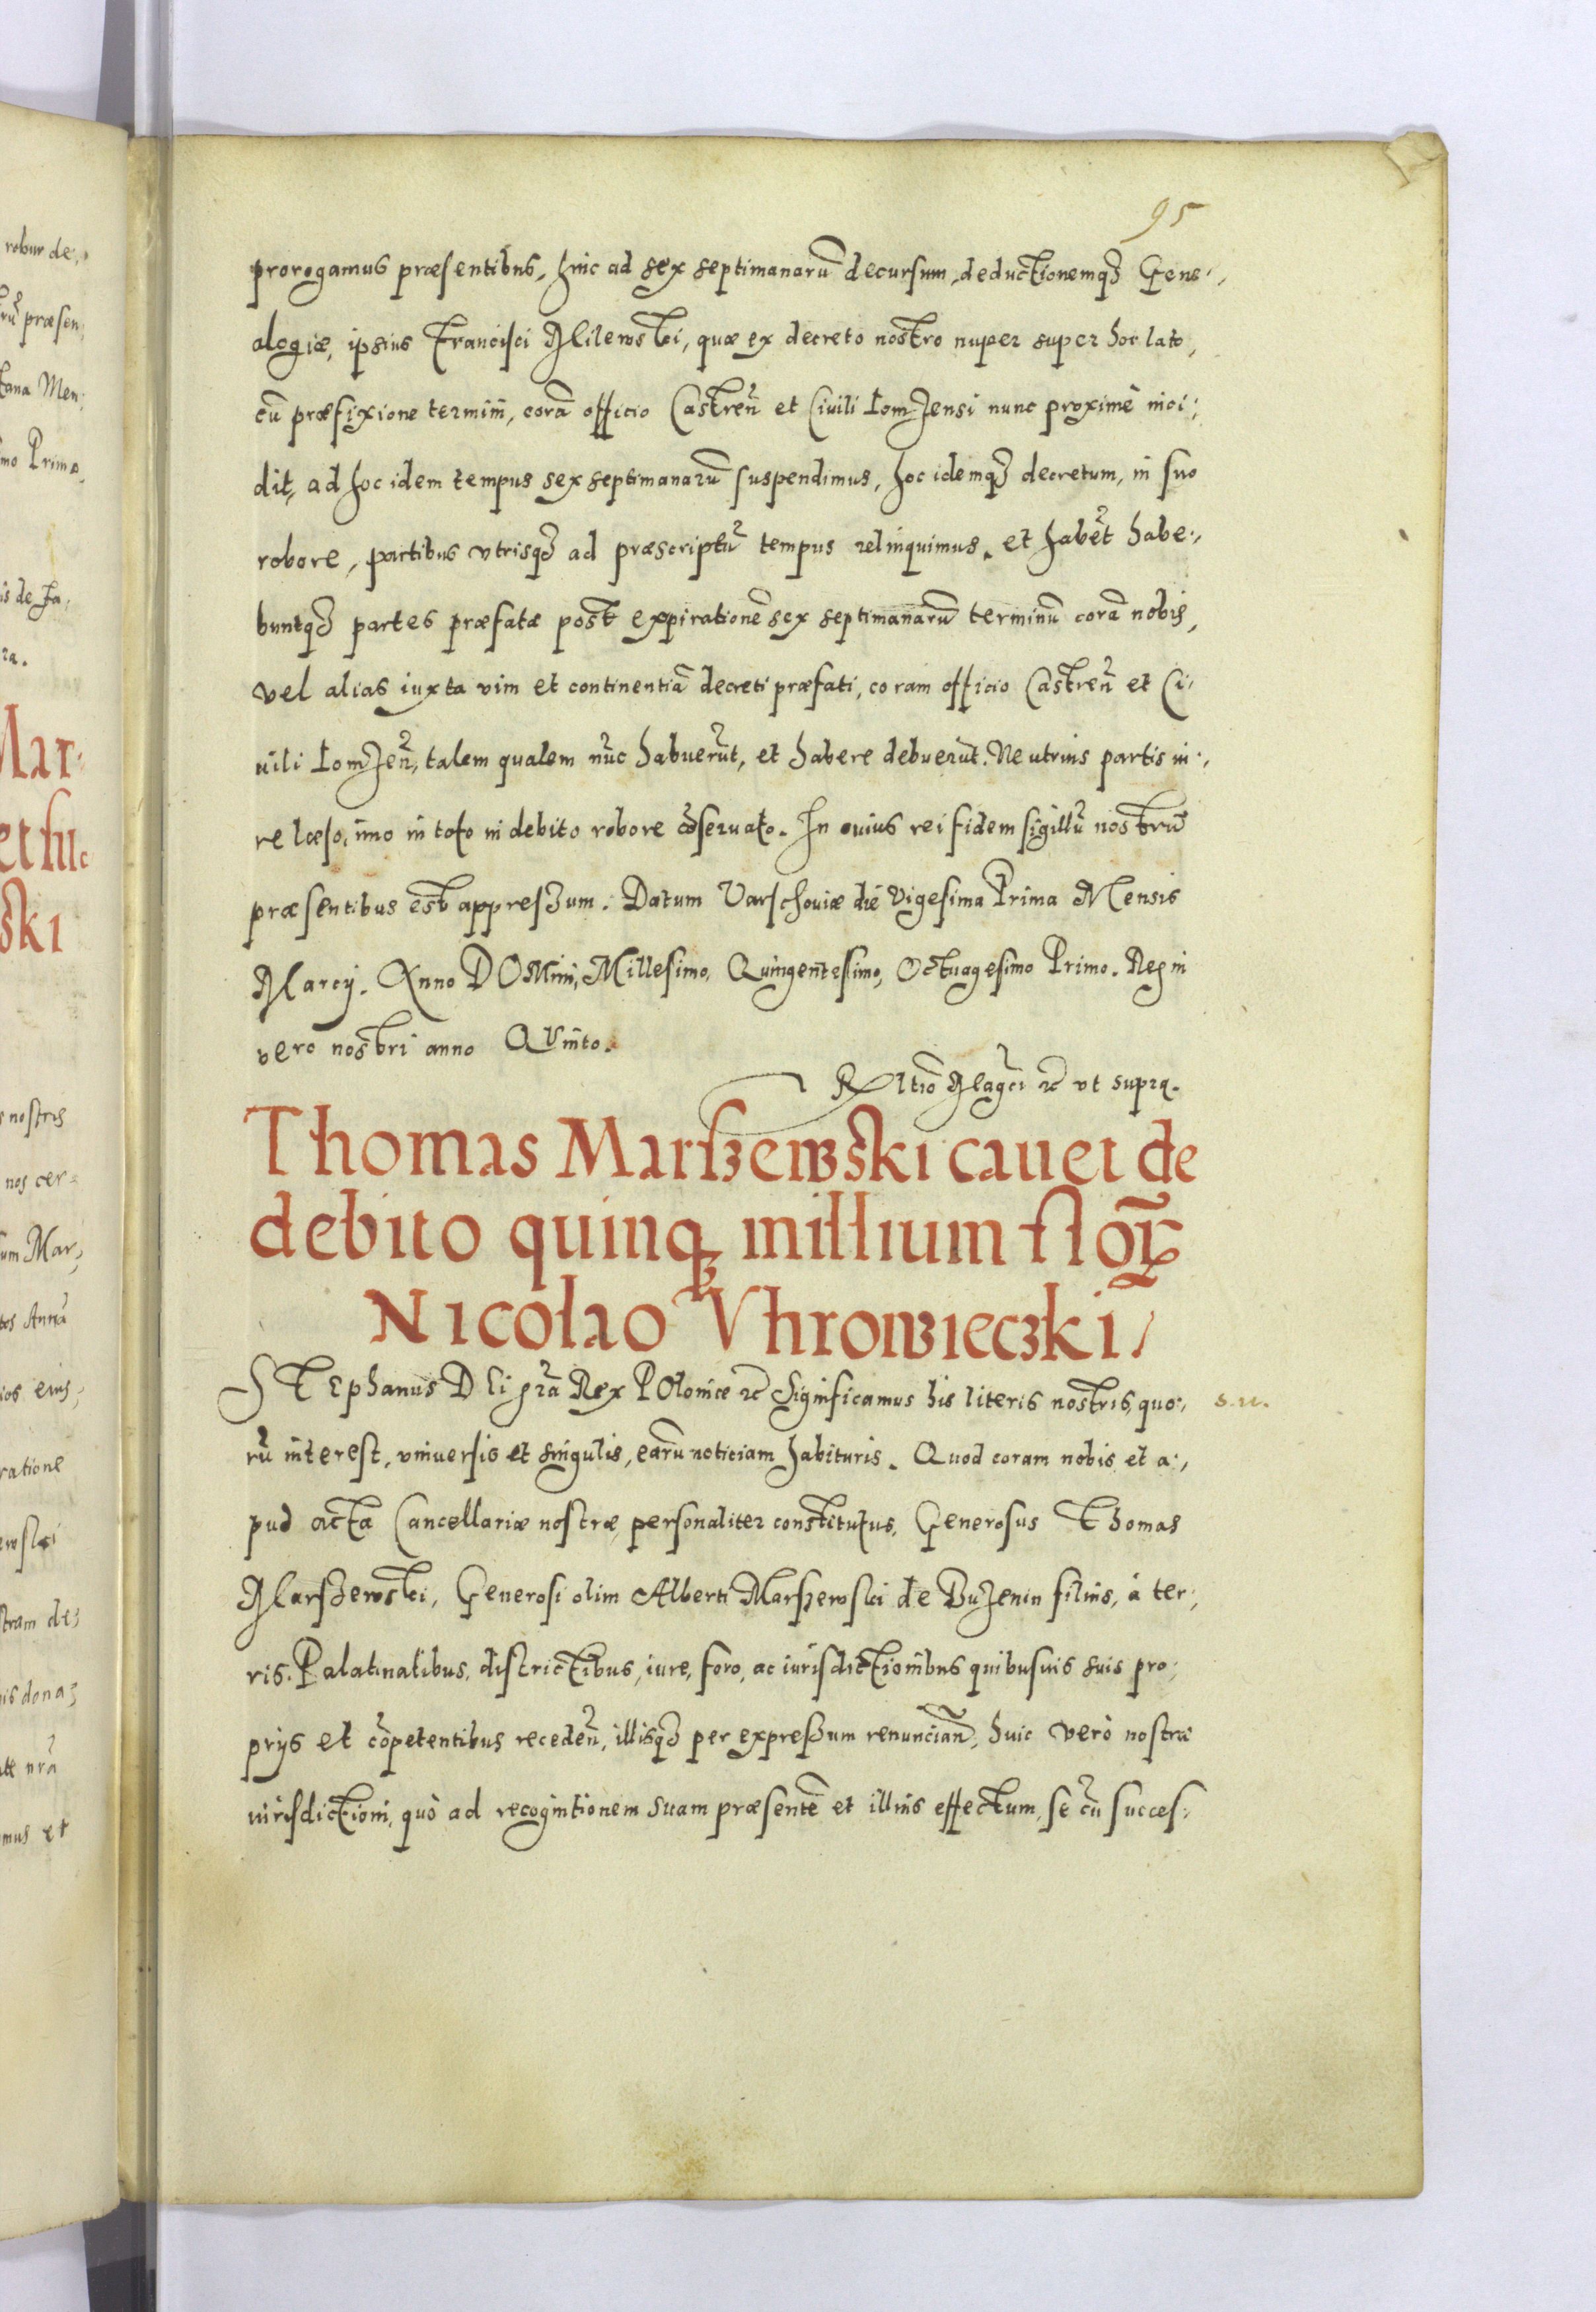 95
prorogamus præsentibus, hinc ad sex septimanarũ decursum, deductionemqʒ Gene-
alogiæ, ipsius Francisci Milewski, quæ ex decreto nostro nuper super hoc lato,
cũ præfixione termini, corã officio Castreñ et Ciuili Lomzensi nunc proximè inci-
dit, ad hoc idem tempus sex septimanarũ suspendimus, hoc idemqʒ decretum, in suo
robore, partibus vtrisqʒ ad præscriptũ tempus relinquimus. et habẽt habe-
buntqʒ partes præfatæ post expirationẽ sex septimanarũ terminũ corã nobis,
vel alias iuxta vim et continentiã decreti præfati, coram officio Castreñ et Ci-
uili Lomzeñ, talem qualem nũc habuerũt, et habere debuerũt. Neutrius partis iu-
re læso, imo in toto in debito robore cõseruato. In cuius rei fidem sigillũ nostrũ
præsentibus est appreszum. Datum Varschouiæ die Vigesima Prima Mensis
Marcij. Anno DOMini, Millesimo, Quingentesimo, Octuagesimo Primo. Regni
vero nostri anno QVinto.
Rltio Magci ꝛc vt supra.
Thomas Marszewski cauet de
debito quinqʒ millium florꝝ
Nicolao Vhrowieczki
STEphanus D Ei grã Rex POloniæ ꝛc Significamus his literis nostris, quo-
s.n.
rũ interest, vniuersis et singulis, earũ noticiam habituris. Quod coram nobis et a-
pud acta Cancellariæ nostræ personaliter constitutus, Generosus Thomas
Marszewski, Generosi olim Alberti Marszewski de Buzenin filius, à ter-
ris. Palatinatibus, districtibus, iure, foro, ac iurisdictionibus quibusuis suis pro-
prijs et cõpetentibus recedeñ, illisqʒ per expreszum renuncian̄, huic verò nostræ
iurisdictioni, quò ad recognitionem suam præsentẽ et illius effectum, se cũ succes-